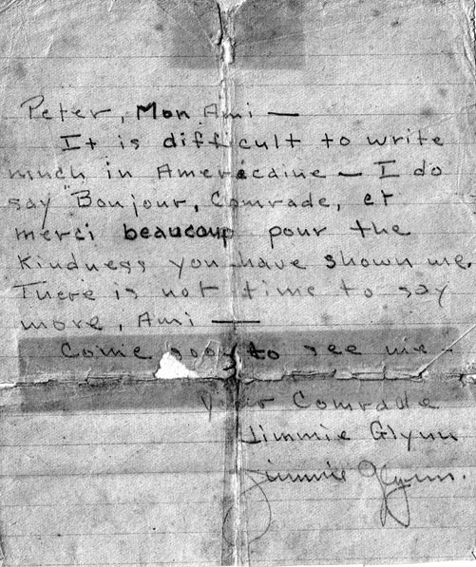 Peter, Mon Ami —
It is difficult to write
much in Americaine — I do
say "Bonjour, Comrade, et
merci beaucoup pour the
kindness you have shown me.
There is not time to say
more, Ami —
Come soon to see me —
your Comrade
Jimmie Glynn
Jimmie Glynn.